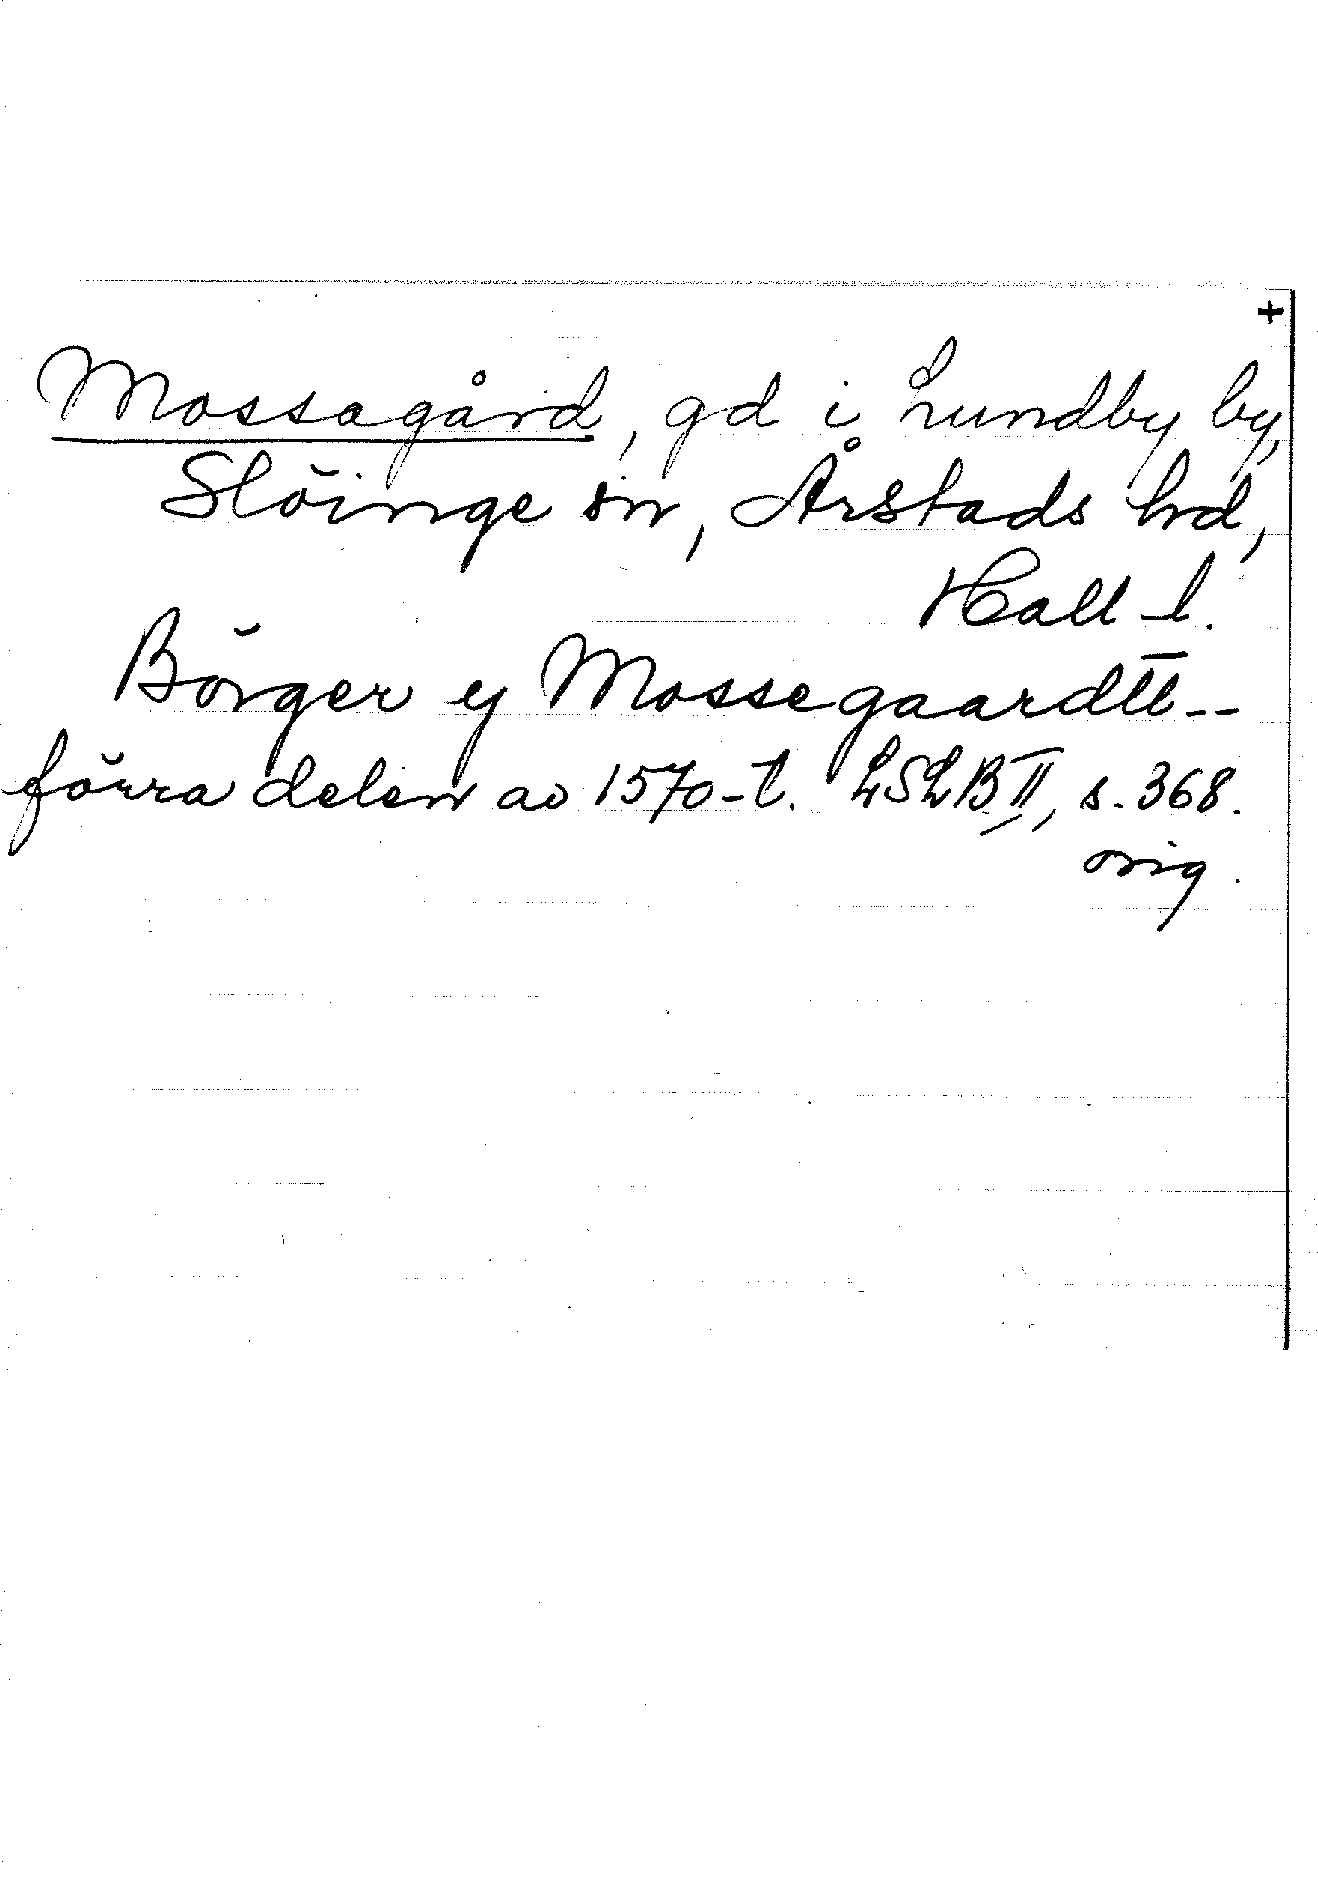 +
Mossagård, gd i Lundby by,
Slöinge sn, Årstads hd,
Hall l.
Börger ij Mossegaardtt--
förra delen av 1570-t. LSLB II, s. 368.
orig.